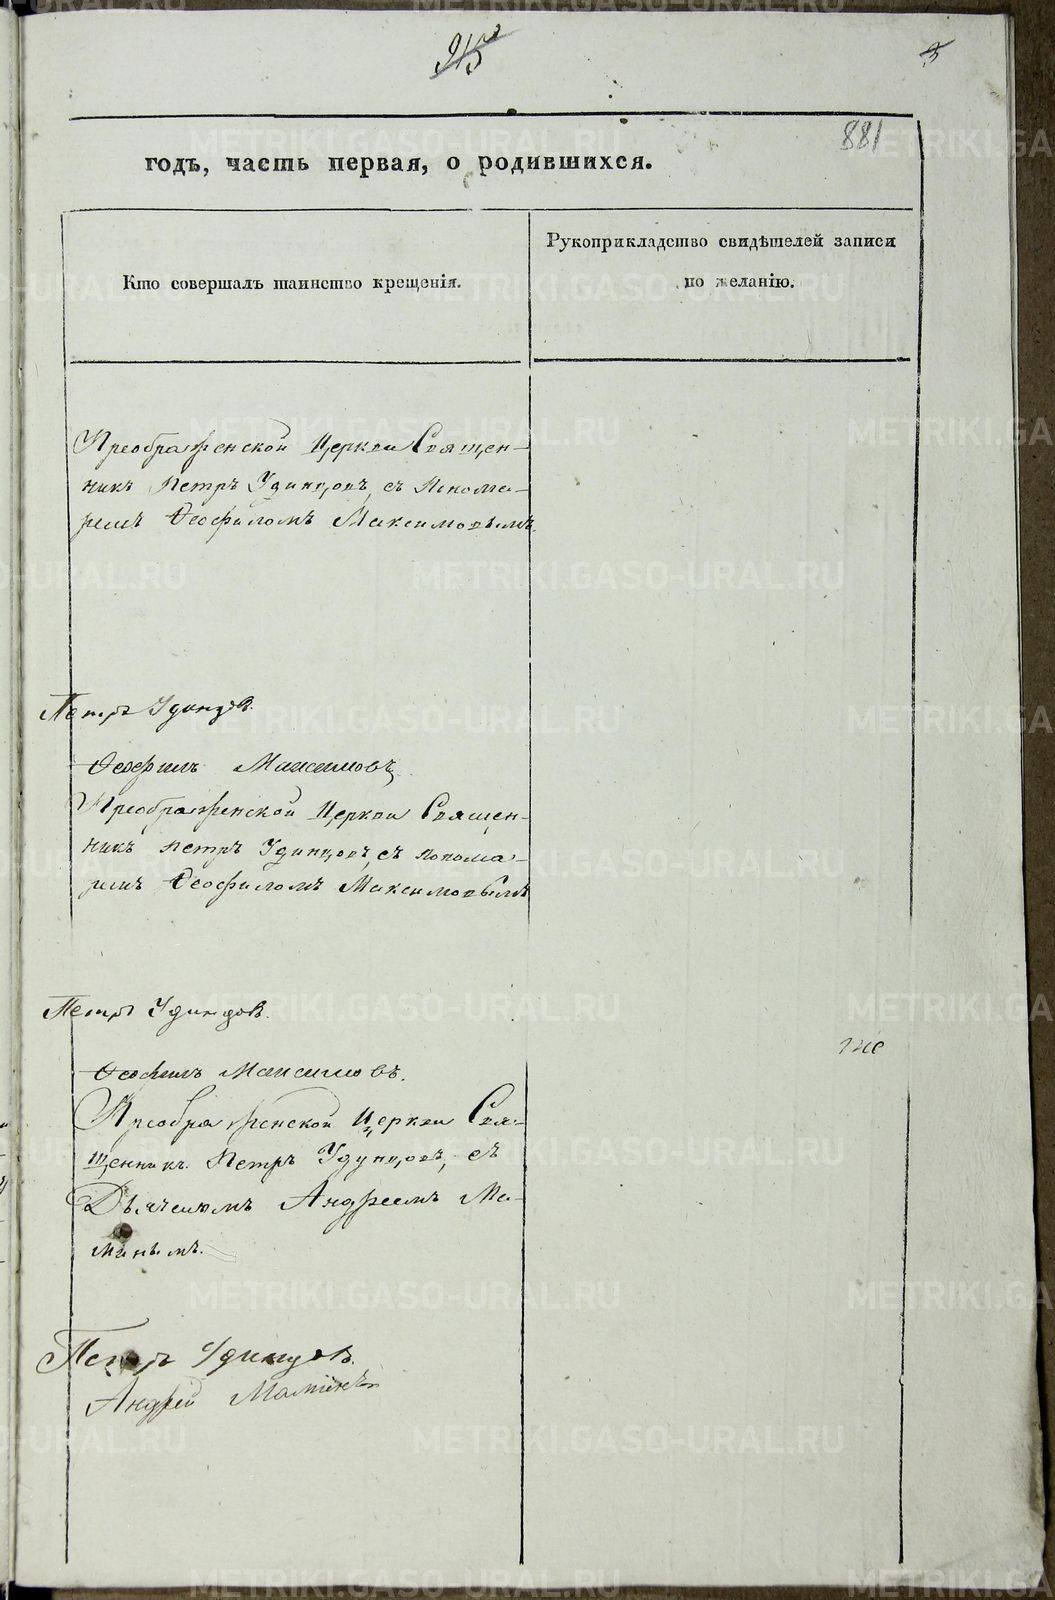 881
годъ, часть первая, о родившихся.
Кто совершалъ таинство крещенія.
Рукоприкладство свидѣтелей записи
по желанію.
Преображенской Церкви Священ-
никъ Петръ Удинцовъ, съ Понома-
ремъ Ѳеофиломъ Максимовымъ.
Петръ Удинцовъ.
Ѳеофилъ Максимовъ.
Преображенской Церкви Священ-
никъ Петръ Удинцовъ, съ понома-
ремъ Ѳеофиломъ Максимовымъ
Петръ Удинцовъ.
Ѳеофилъ Максимовъ.
Преображенской Церкви Свя-
щенникъ Петръ Удинцовъ, съ
Дьячекомъ Андреемъ Ма-
минымъ.
Петръ Удинцовъ.
Андрей Маминъ
METRIKI.GASO-URAL.RU